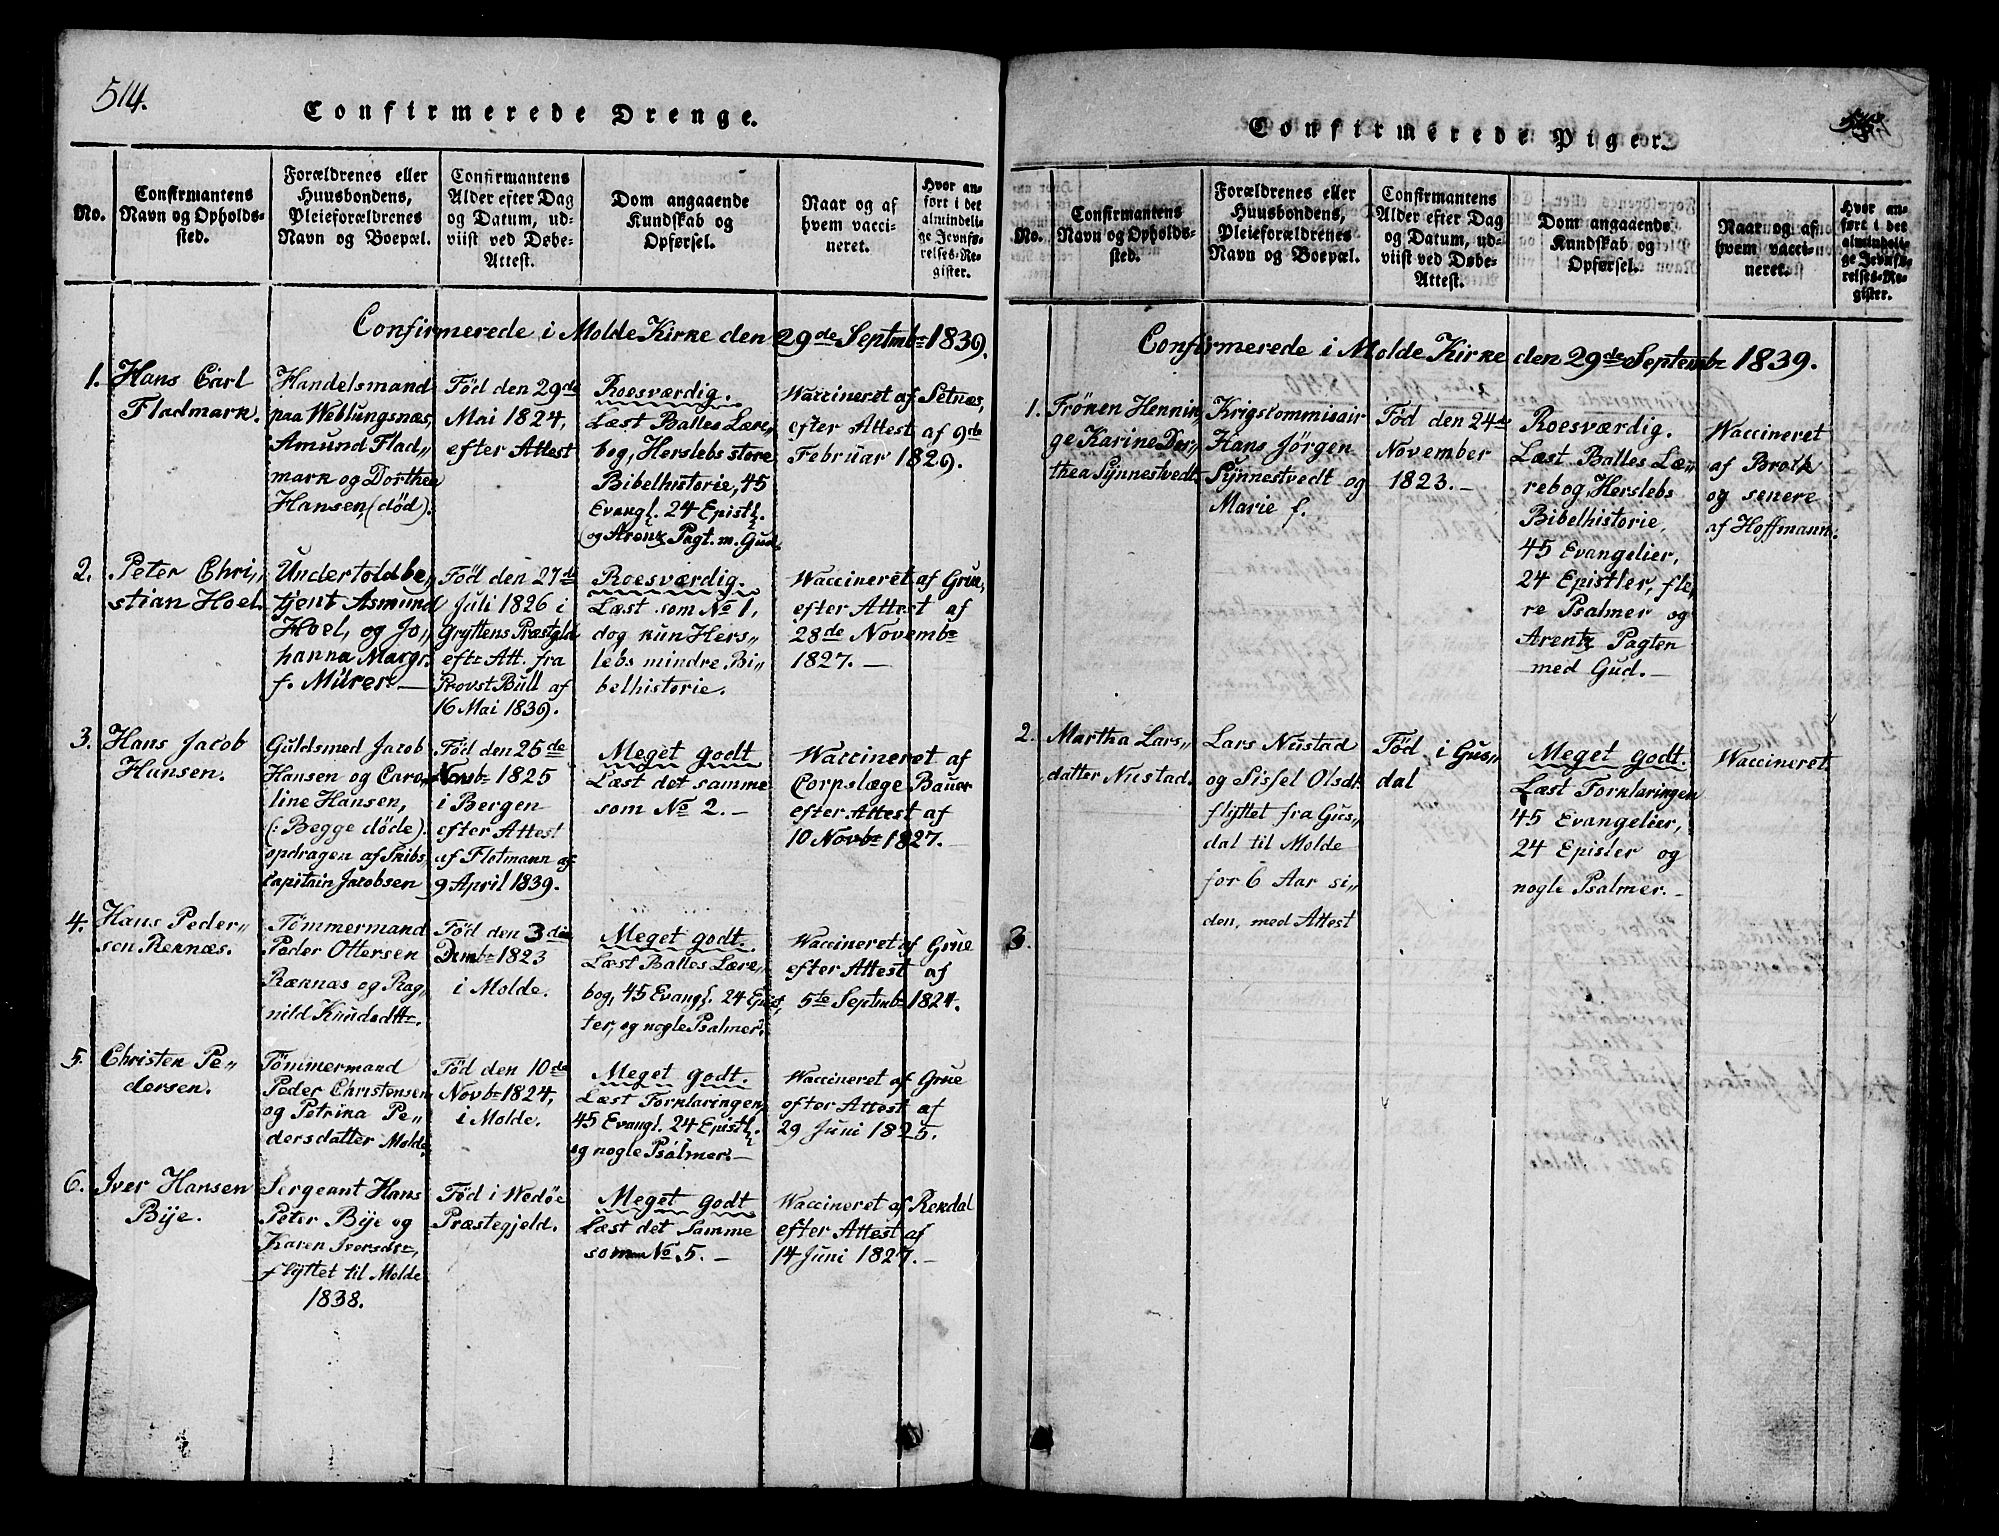 514.
Confirmerede Drenge.
No.
Confirmantens
Navn og Opholds-
sted.
Forældrenes eller
Huusbondens,
Pleieforældrenes
Navn og Boepæl.
Confirmantens
Alder efter Dag
og Datum, ud-
viist ved Døbe-
Attest.
Dom angaaende
Kundskab og
Opførsel.
Naar og af
hvem vacci-
neret.
Hvor an-
ført i det
almindeli-
ge Jevnfø-
relses-Re-
gister.
Confirmerede i Molde Kirke den 29de Septmbr 1839.
1. Hans Carl
Fladmark.
Handelsmand
paa Weblungsnæs,
Amund Flad„
mark og Dorthea
Hansen, (død).
Født den 29de
Mai 1824,
efter Attest
Roesværdig.
Læst Balles Lære„
bog, Herslebs store
Bibelhistorie, 45
Evangl. 24 Epistl.
og Arentz Pagt. m. Gud.
Vaccineret af Setnæs,
efter Attest af 9de
Februar 1829.
2. Peter Chri„
stian Hoel.
Undertoldbe„
tjent Asmund
Hoel, og Jo„
hanna Margr.
f. Milrer.—
Fød den 27de
Juli 1826 i
Gryttens Præstgld
eftr Att. fra
Provst Bull af
16 Mai 1839.
Roesværdig.
Læst som No 1,
dog kun Hers„
lebs mindre Bi„
belhistorie.
Vaccineret af Grue,
efter Attest af
28de Novembr
1827. —
3. Hans Jacob
Hansen.
Guldsmed Jacob
Hansen og Caro„
line Hansen,
(: Begge døde).
opdragen af Skibs„
capitain Jacobsen
Fød den 25de
Novbr 1825
i Bergen
efter Attest
af Flotmann af
9 April 1839.
Meget godt
Læst det samme
som No 2. —
Vaccineret af
Corpslæge Bauer
efter Attest af
10 Novbr 1827. —
4. Hans Peder„
son Rennæs.
Tømmermand
Peder Ottersen
Rænnæs og Rag„
nild Knudsdttr.
Fød den 3die
Decmbr 1823
i Molde.
Meget godt.
Læst Balles Lære„
bog, 45 Evangl. 24 Epist„
ler, og nogle Psalmer.
Vaccineret af Grue
efter Attest af
5te Septmbr 1824.
5. Christen Pe„
dersen.
Tømmermand
Peder Christensen
og Petrina Pe„
dersdatter Molde.
Fød den 10de
Novbr 1824,
i Molde.
Meget godt.
Læst Forklaringen,
45 Evangl. 24 Epistl.
og nogle Psalmer.—
Vaccineret af Grue
efter Attest af
29 Juni 1825.
6. Iver Hansen
Bije.
Sergeant Hans
Peter Bije og
Karen Iversdtr,
flyttet til Molde
1838.
Fød i Wedøe
Præstegjeld.
Meget godt
Læst det Samme
som No 5. —
Vaccineret af Rekdal
efter Attest af
14 Juni 1827. —
Confirmerede Piger.
No.
Confirmantens
Navn og Opholds-
sted.
Forældrenes eller
Huusbondens,
Pleieforældrenes
Navn og Boepæl.
Confirmantens
Alder efter Dag
og Datum, ud-
viist ved Døbe-
Attest.
Dom angaaende
Kundskab og
Opførsel.
Naar og af
hvem vacci-
neret.
Hvor an-
ført i det
almindeli-
ge Jevnfø-
relses-Re-
gister.
Confirmerede i Molde Kirke den 29de Septembr 1839.
1. Frøken Hennin„
ge Karine Dor„
thea Synnestvedt.
Krigscommisair
Hans Jørgen
Synnestvedt og
Marie f.
Fød den 24de
November
1823. —
Roesværdig.
Læst Balles Læ„
rebog, Herslebs
Bibelhistorie,
45 Evangelier,
24 Epistler, fle„
re Psalmer og
Arentz Pagten
med Gud. —
Vaccineret
af Brock
og senere
af Hoffmann.
2. Martha Lars„
datter Nustad.
Lars Nustad
og Sissel Olsdt.
flyttet fra Gus„
dal til Molde
for 6 Aar si„
den, med Attest
Fød i Gus„
dal
Meget godt.
Læst Forklaringen
45 Evangelier,
24 Episler og
nogle Psalmer. —
Vaccineret.
3.